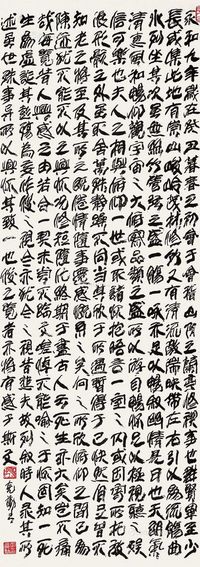 永和九年歲在癸丑暮春之初會于會稽山陰之蘭亭修禊事也群賢畢至少
長咸集此地有崇山峻嶺茂林修竹又有清流激湍映帶左右引以為流觴曲
水列坐其次雖無絲竹管弦之盛一觴一詠亦足以暢敘幽情是日也天朗氣
清惠風和暢仰觀宇宙之大俯察品類之盛所以遊目騁懷足以極視聽之娛
信可樂也夫人之相與俯仰一世或取諸懷抱悟言一室之內或因寄所託放
浪形骸之外雖趣舍萬殊靜躁不同當其欣於所遇暫得於己快然自足不
知老之將至及其所之既倦情隨事遷感慨係之矣向之所欣俯仰之間已為
陳跡猶不能不以之興懷況修短隨化終期于盡古人云死生亦大矣豈不痛
哉每覽昔人興感之由若合一契未嘗不臨文嗟悼不能喻之于懷固知一死
生為虛誕齊彭殤為妄作後之視今亦猶今之視昔悲夫故列敘時人錄其所
述雖世殊事異所以興懷其致一也後之覽者亦將有感于斯文